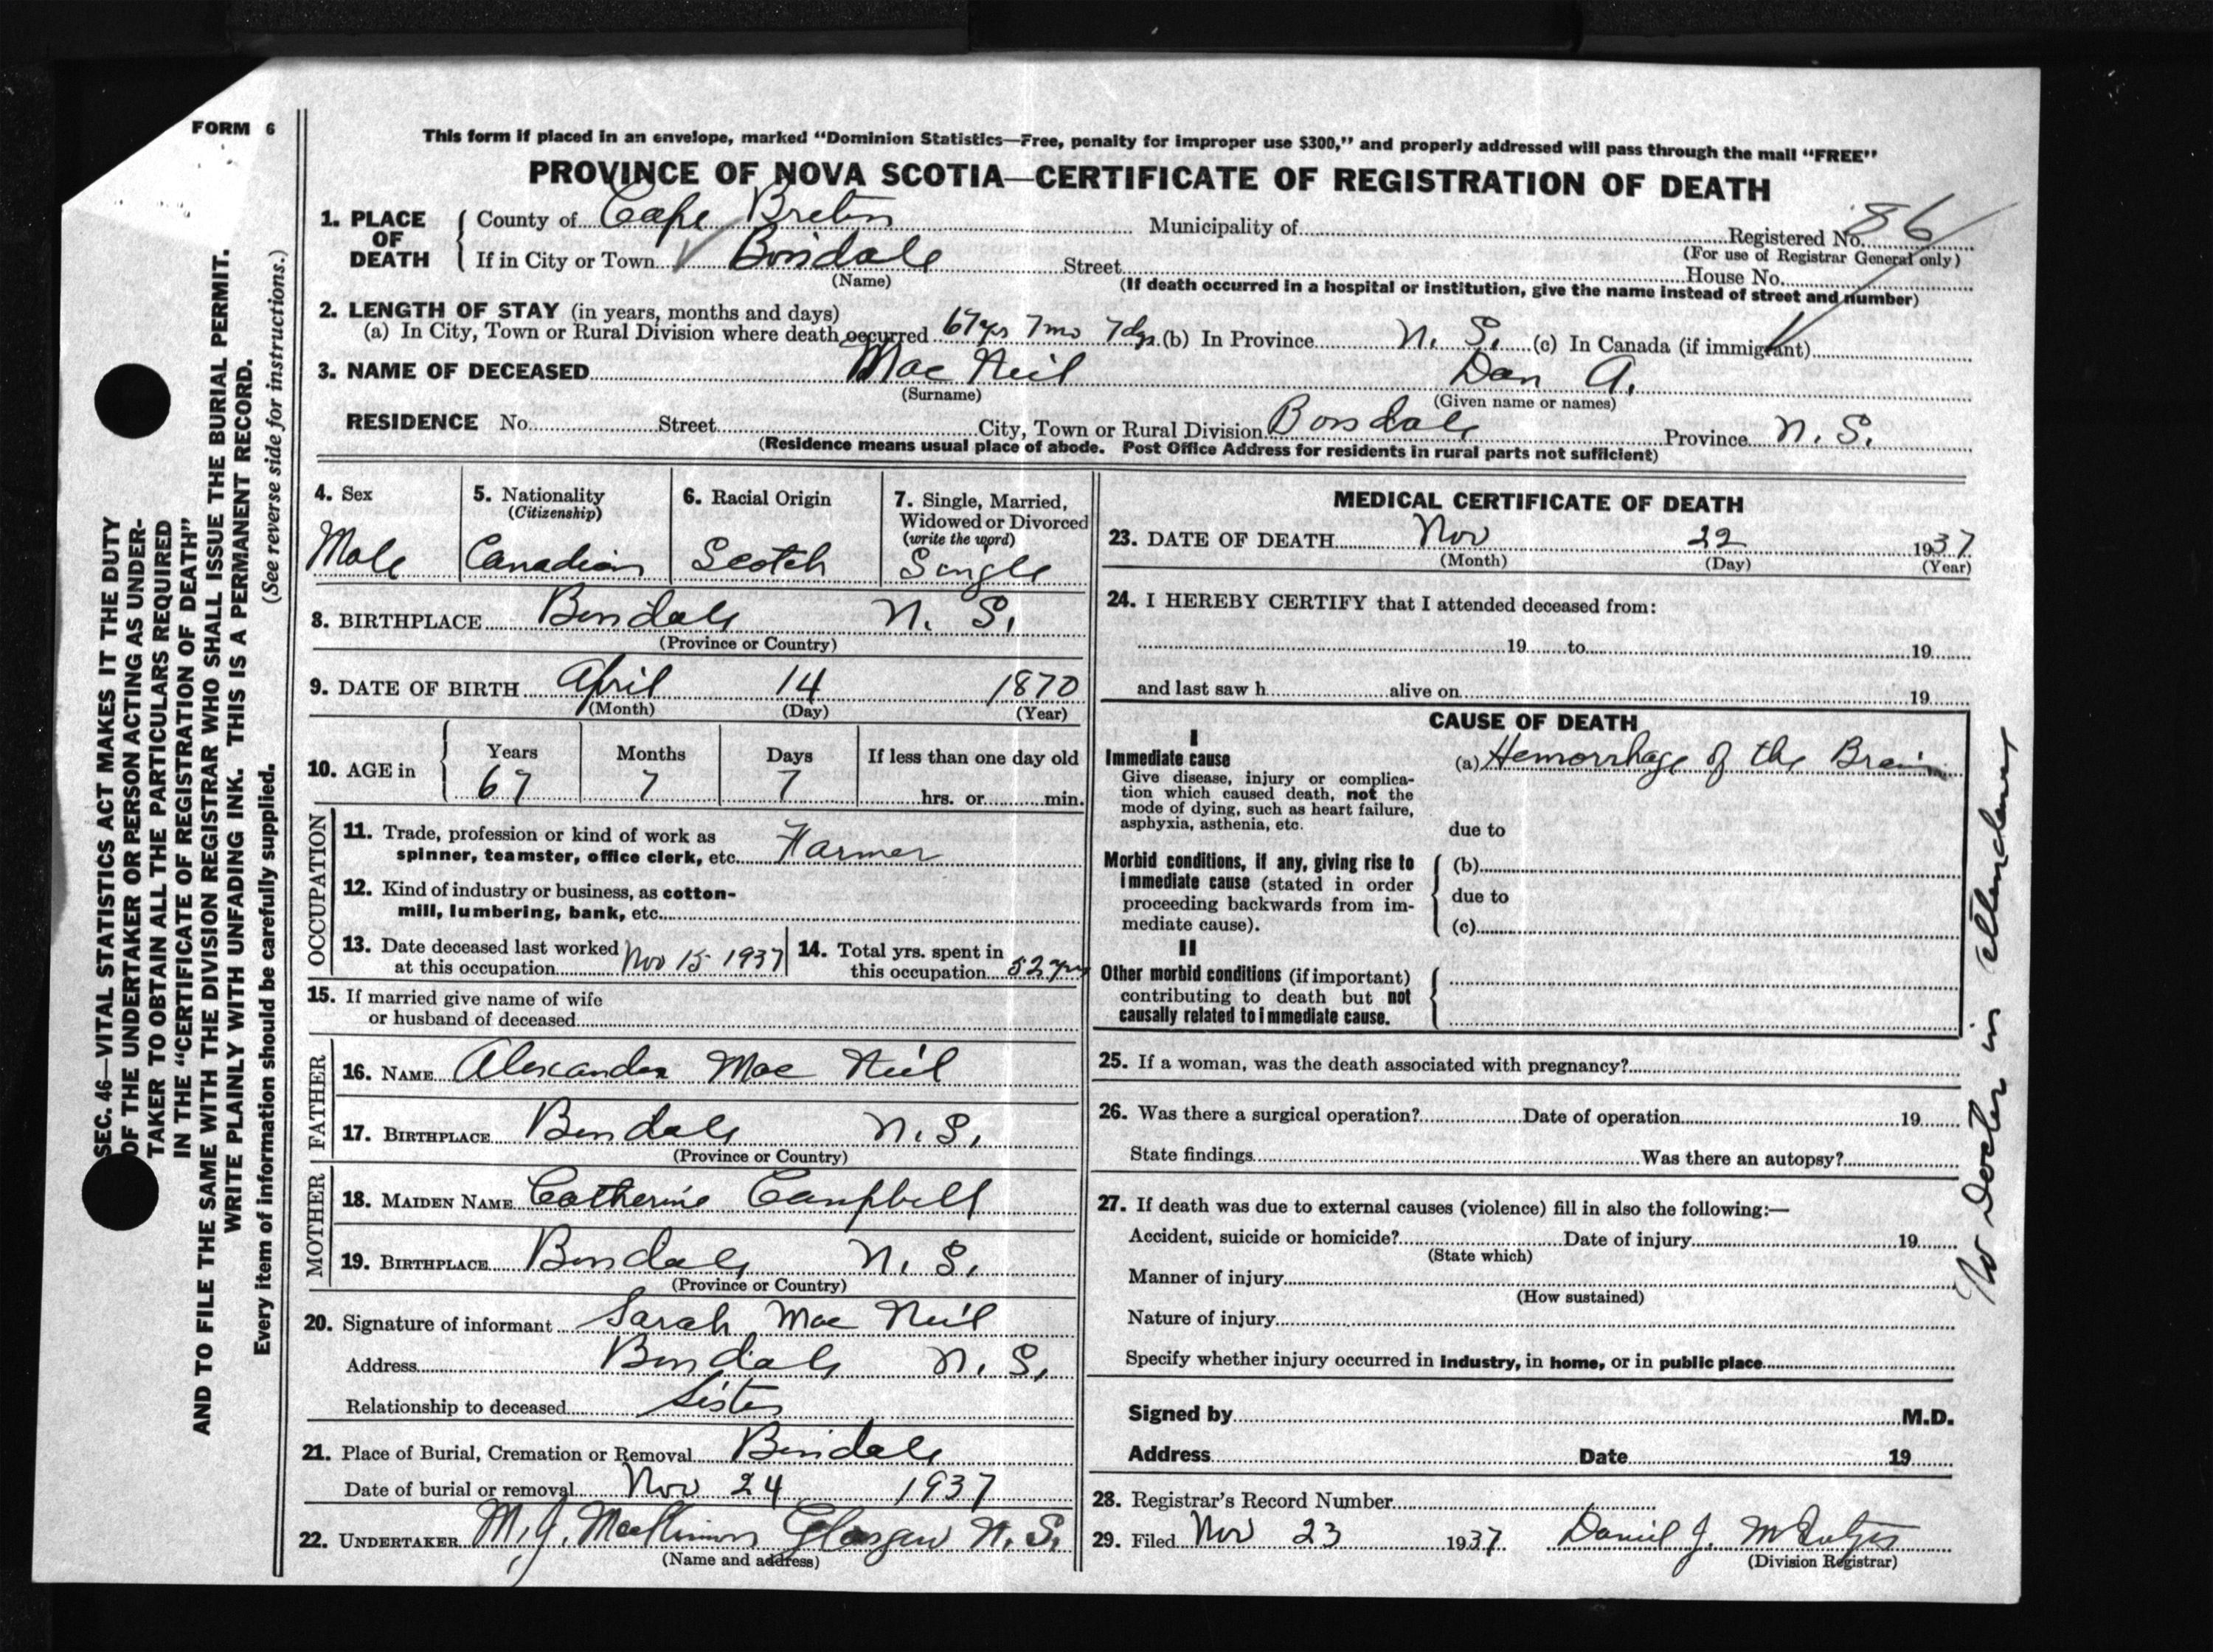 FORM 6
This form if placed in an envelope, marked "Dominion Statistics—Free, penalty for improper use $300," and properly addressed will pass through the mail "FREE"
PROVINCE OF NOVA SCOTIA—CERTIFICATE OF REGISTRATION OF DEATH
1. PLACE OF DEATH County of Cape Breton Municipality of Registered No. 86
(For use of Registrar General only)
If in City or Town Boisdale Street House No.
(Name) (If death occurred in a hospital or institution, give the name instead of street and number)
2. LENGTH OF STAY (in years, months and days)
(a) In City, Town or Rural Division where death occurred 67 yrs 7 mo 7 dys (b) In Province N. S. (c) In Canada (if immigrant)
3. NAME OF DECEASED Mac Neil Dan A.
(Surname) (Given name or names)
RESIDENCE No. Street City, Town or Rural Division Boisdale Province N. S.
(Residence means usual place of abode. Post Office Address for residents in rural parts not sufficient)
4. Sex
Male
5. Nationality
(Citizenship)
Canadian
6. Racial Origin
Scotch
7. Single, Married,
Widowed or Divorced
(write the word)
Single
8. BIRTHPLACE Boisdale N. S.
(Province or Country)
9. DATE OF BIRTH April 14 1870
(Month) (Day) (Year)
10. AGE in Years Months Days If less than one day old
67 7 7 hrs. or min.
OCCUPATION
11. Trade, profession or kind of work as
spinner, teamster, office clerk, etc. Farmer
12. Kind of industry or business, as cotton-
mill, lumbering, bank, etc.
13. Date deceased last worked
at this occupation Nov 15 1937
14. Total yrs. spent in
this occupation 52 yrs
15. If married give name of wife
or husband of deceased
FATHER
16. NAME Alexander Mac Neil
17. BIRTHPLACE Boisdale N. S.
(Province or Country)
MOTHER
18. MAIDEN NAME Catherine Campbell
19. BIRTHPLACE Boisdale N. S.
(Province or Country)
20. Signature of informant Sarah Mac Neil
Address Boisdale N. S.
Relationship to deceased Sister
21. Place of Burial, Cremation or Removal Boisdale
Date of burial or removal Nov 24 1937
22. UNDERTAKER M. J. MacKinnon Glasgow N. S.
(Name and address)
MEDICAL CERTIFICATE OF DEATH
23. DATE OF DEATH Nov 22 1937
(Month) (Day) (Year)
24. I HEREBY CERTIFY that I attended deceased from:
19 to 19
and last saw h alive on 19
CAUSE OF DEATH
I
Immediate cause
Give disease, injury or complica-
tion which caused death, not the
mode of dying, such as heart failure,
asphyxia, asthenia, etc.
(a) Hemorrhage of the Brain
due to
Morbid conditions, if any, giving rise to
immediate cause (stated in order
proceeding backwards from im-
mediate cause).
(b)
due to
(c)
II
Other morbid conditions (if important)
contributing to death but not
causally related to immediate cause.
25. If a woman, was the death associated with pregnancy?
26. Was there a surgical operation? Date of operation 19
State findings Was there an autopsy?
27. If death was due to external causes (violence) fill in also the following:—
Accident, suicide or homicide? Date of injury 19
(State which)
Manner of injury
(How sustained)
Nature of injury
Specify whether injury occurred in Industry, in home, or in public place
Signed by M.D.
Address Date 19
28. Registrar's Record Number
29. Filed Nov 23 1937 Daniel J.
(Division Registrar)
No Doctor in attendance
SEC. 46—VITAL STATISTICS ACT MAKES IT THE DUTY
OF THE UNDERTAKER OR PERSON ACTING AS UNDER-
TAKER TO OBTAIN ALL THE PARTICULARS REQUIRED
IN THE "CERTIFICATE OF REGISTRATION OF DEATH"
AND TO FILE THE SAME WITH THE DIVISION REGISTRAR WHO SHALL ISSUE THE BURIAL PERMIT.
WRITE PLAINLY WITH UNFADING INK. THIS IS A PERMANENT RECORD.
Every item of information should be carefully supplied.
(See reverse side for instructions.)